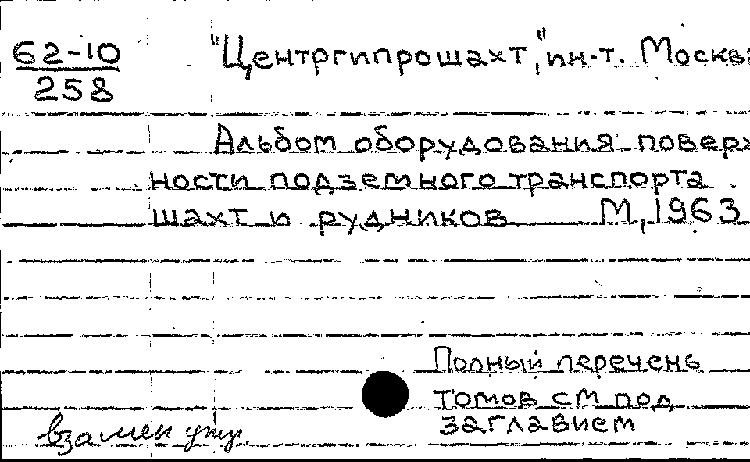 62-10
258
"Центргипрошахт," ин-т. Москва
Альбом оборудования поверх
ности подземного транспорта.
шахт и рудников М, 1963
Полный перечень
томов см под
заглавием
взамен